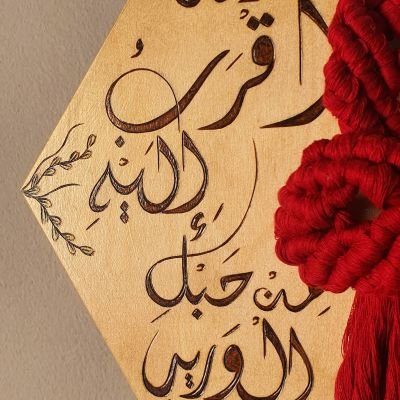 أقرب
إليه
من حبل
الوريد